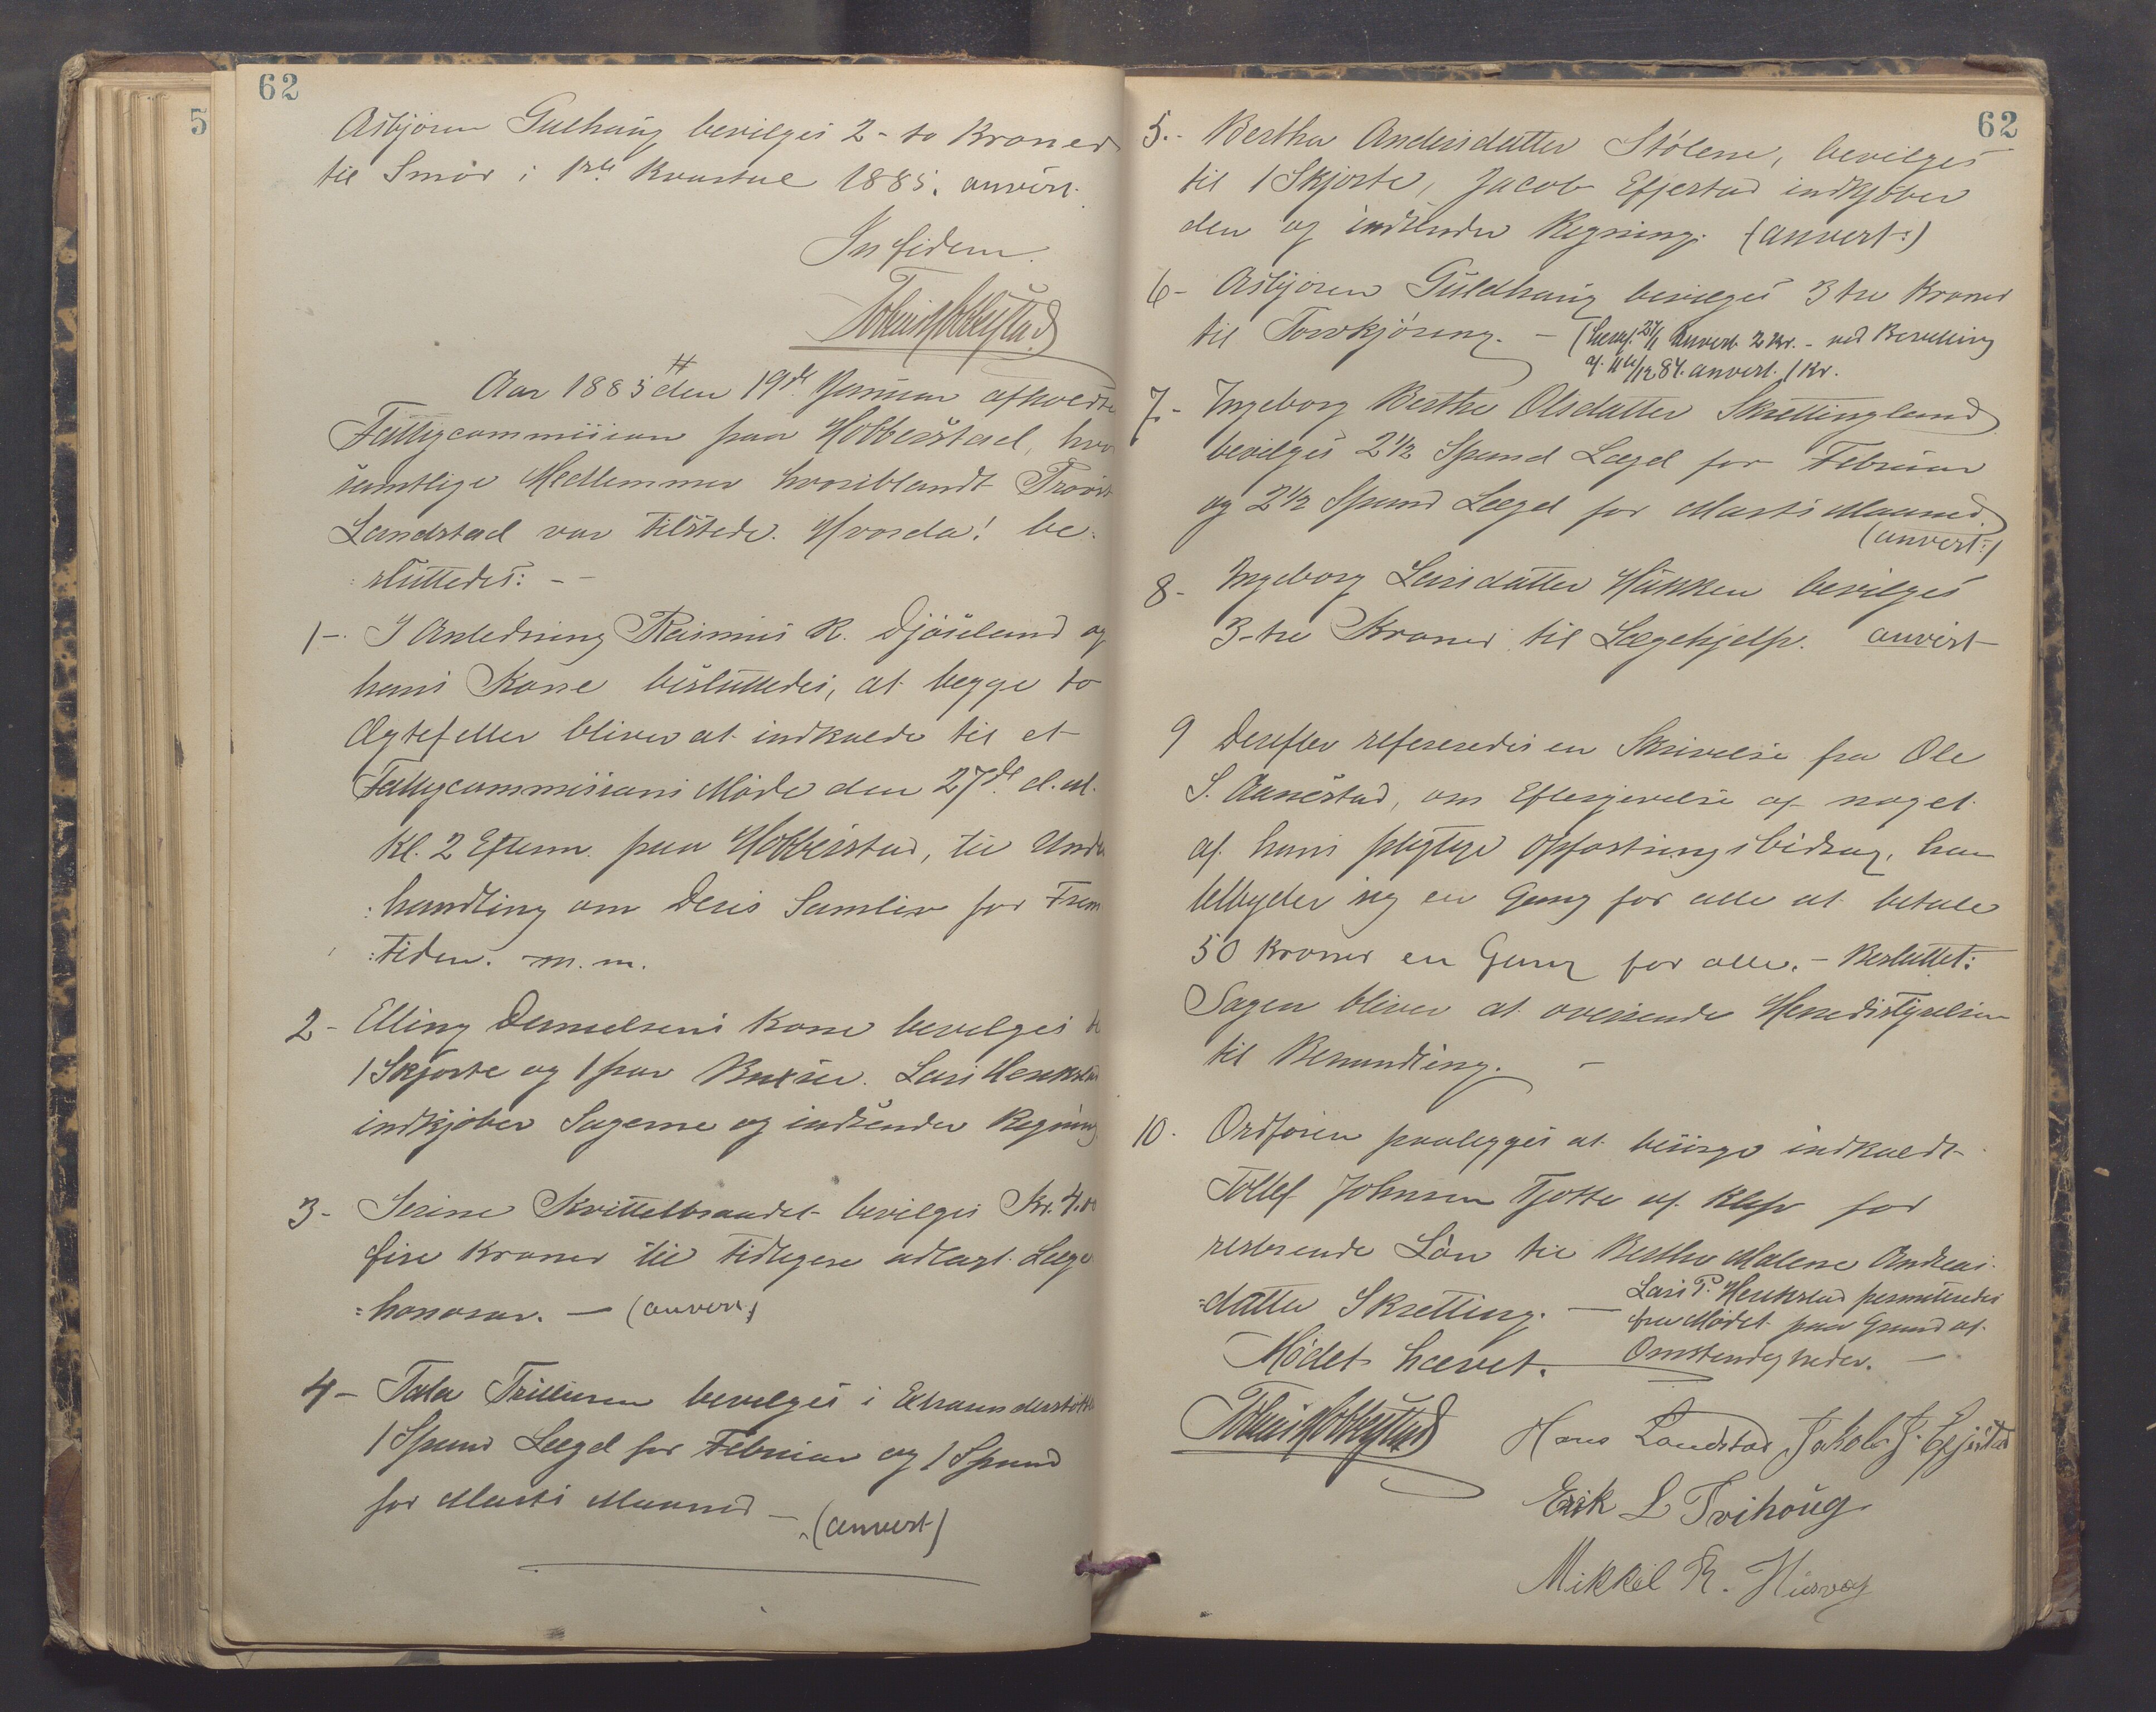 62
Asbjørn Gulhaug bevilges 2 - to Kroner
til Smør i 1ste Kvartal 1885. anvist.
In fidem
Tobias Hobberstad
Aar 1885 den 19de Januar afholdtes
Fattigcommission paa Hobberstad, hvor
samtlige Medlemmer hvoriblandt Provst
Landstad var tilstede. Hvorda! be-
:sluttedes: - -
1 -. I Anledning Rasmus R. Djøseland og
hans Kone besluttedes, at begge to
Ægtefeller bliver at indkalde til et
Fattigcommissions Møde den 27de d. M.
Kl. 2 Efterm. paa Hobberstad, til Under
:handling om Deres Samliv for Frem
:tiden. m. m.
2 - Elling Danielsens Kone bevilges til
1 Skjorte og 1 par Buxser. Lars Henrikstad
indkjøber Sagerne og indsender Regning
3 - Serine Kvittelbraadet bevilges Kr. 4.00
fire Kroner til tidligere udlagt Læge
=honorar. — (anvist.)
4 - Tala bevilges i Extraunderstøttelse
1 Spand Legel for Februar og 1 Spand
for Marts Maaned — (anvist)
62
5. - Bertha Andersdatter Stølene, bevilges
til 1 Skjorte, Jacob Efjestad indkjøber
den og indsender Regning. (anvist:)
6 - Asbjørn Guldhaug bevilges 3 tre Kroner
til Torvkjøring. — anvist 2 Kr. - ved Bevilling
af 11te/12 84. anvist. 1 Kr.
7 - Ingeborg Berthe Olsdatter Skrettingland
bevilges 2 1/2 Spand Legel for Februar
og 2 1/2 Spand Legel for Marts Maaned.
(anvist:)
8 - Ingeborg Larsdatter Haukken bevilges
3 - tre Kroner til Lægehjelp. anvist
9 Derefter refereredes en Skrivelse fra Ole
S. Aanestad, om Eftergivelse af noget
af hans pligtige Opfostringsbidrag, han
tilbyder sig en Gang for alle at betale
50 Kroner en Gang for alle. - Besluttet:
Sagen bliver at oversende Heredsstyrelsen
til Behandling. —
10. Ordføren paalegges at besørge indkaldt
Tollef Johnsen Tjøtte af Klep for
resterende Løn til Berthe Malene Andreas-
=datter Skretting. — Lars P. Henrikstad permitteredes
fra Mødet paa Grund af
Omstendigheder. —
Mødet hævet.
Tobias Hobberstad
Hans Landstad Jakob J. Efjestad
Erik L Tvihoug
Mikkel R. Husvæg
5